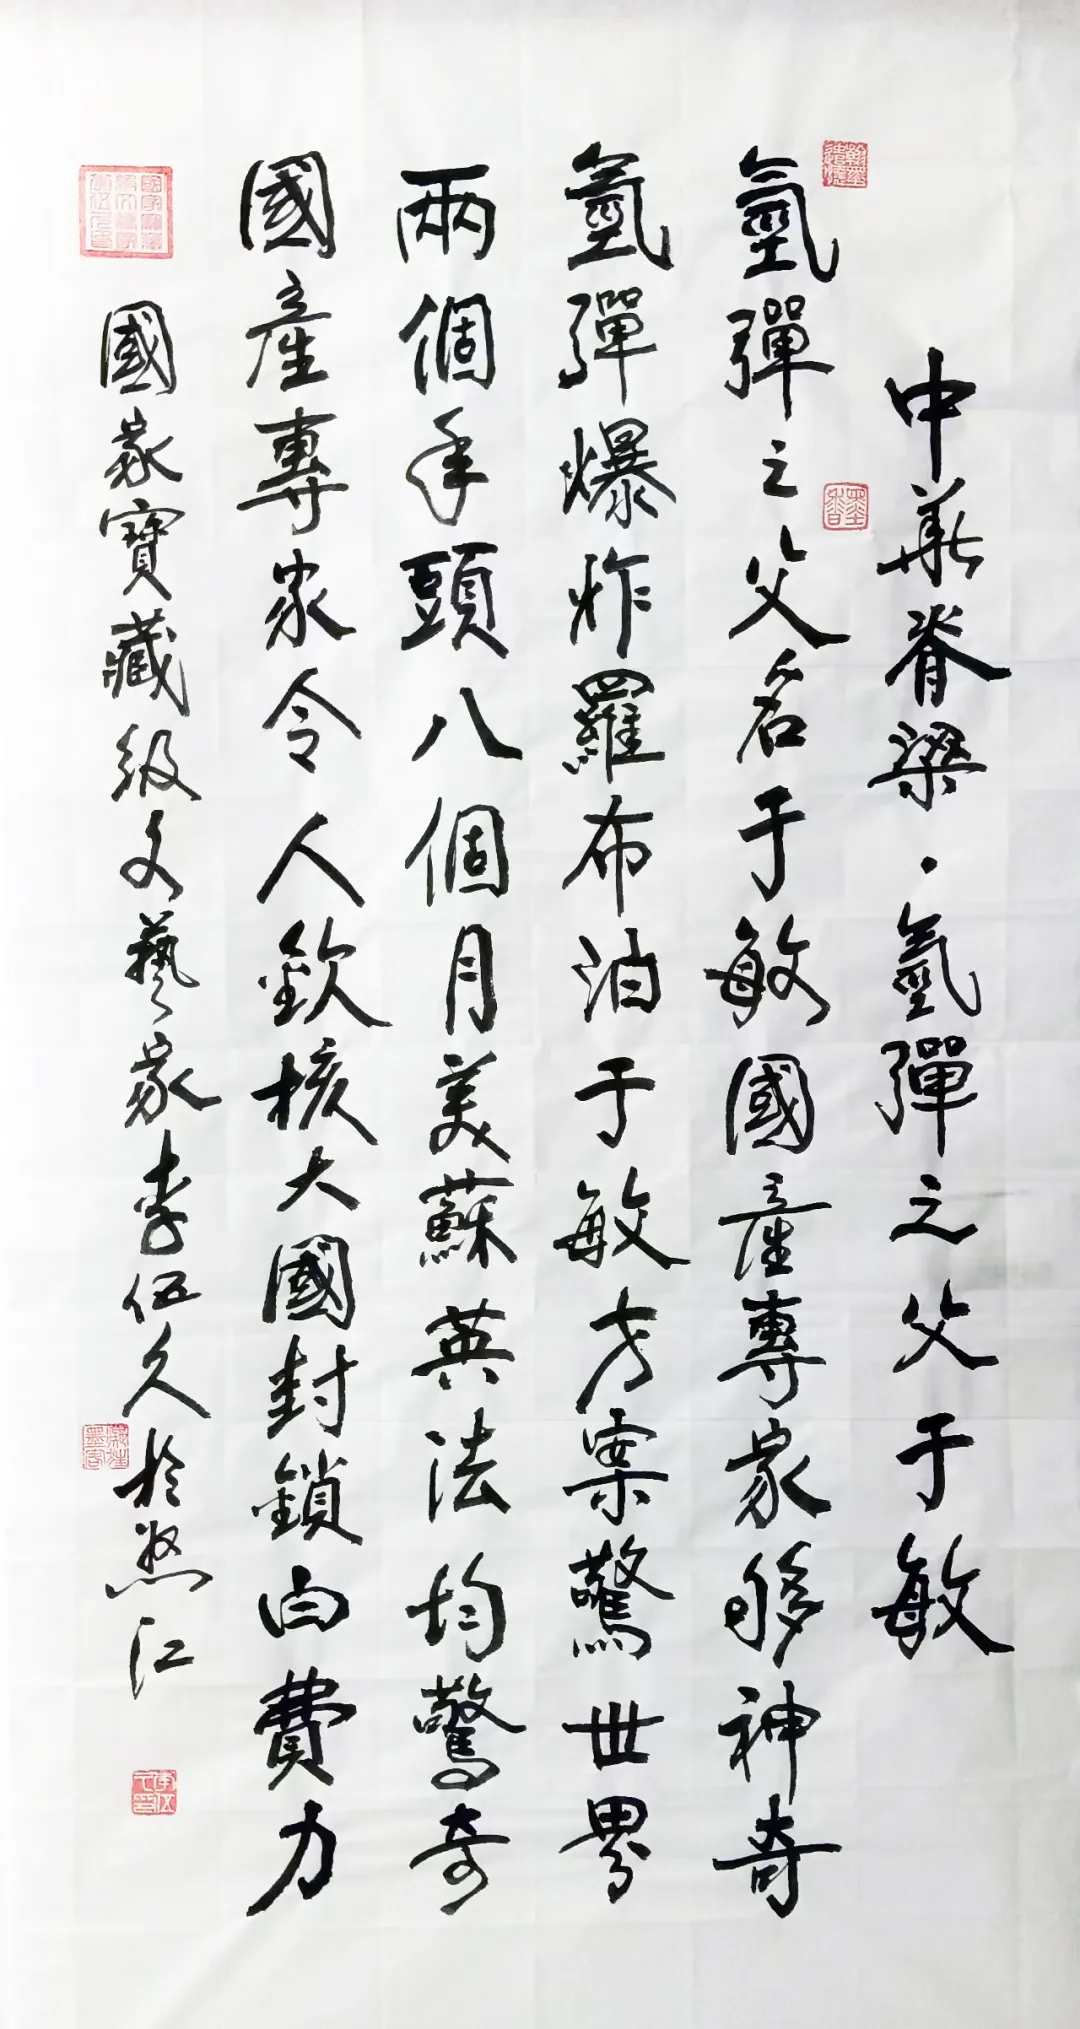 中華脊梁·氫彈之父于敏
氫彈之父名于敏國產專家够神奇
氫彈爆炸羅布泊于敏方案驚世界
兩個年頭八個月美蘇英法均驚奇
國產專家令人欽核大國封鎖白費力
國家寶藏級文藝家李伍久於怒江
翰墨
墨香
墨客